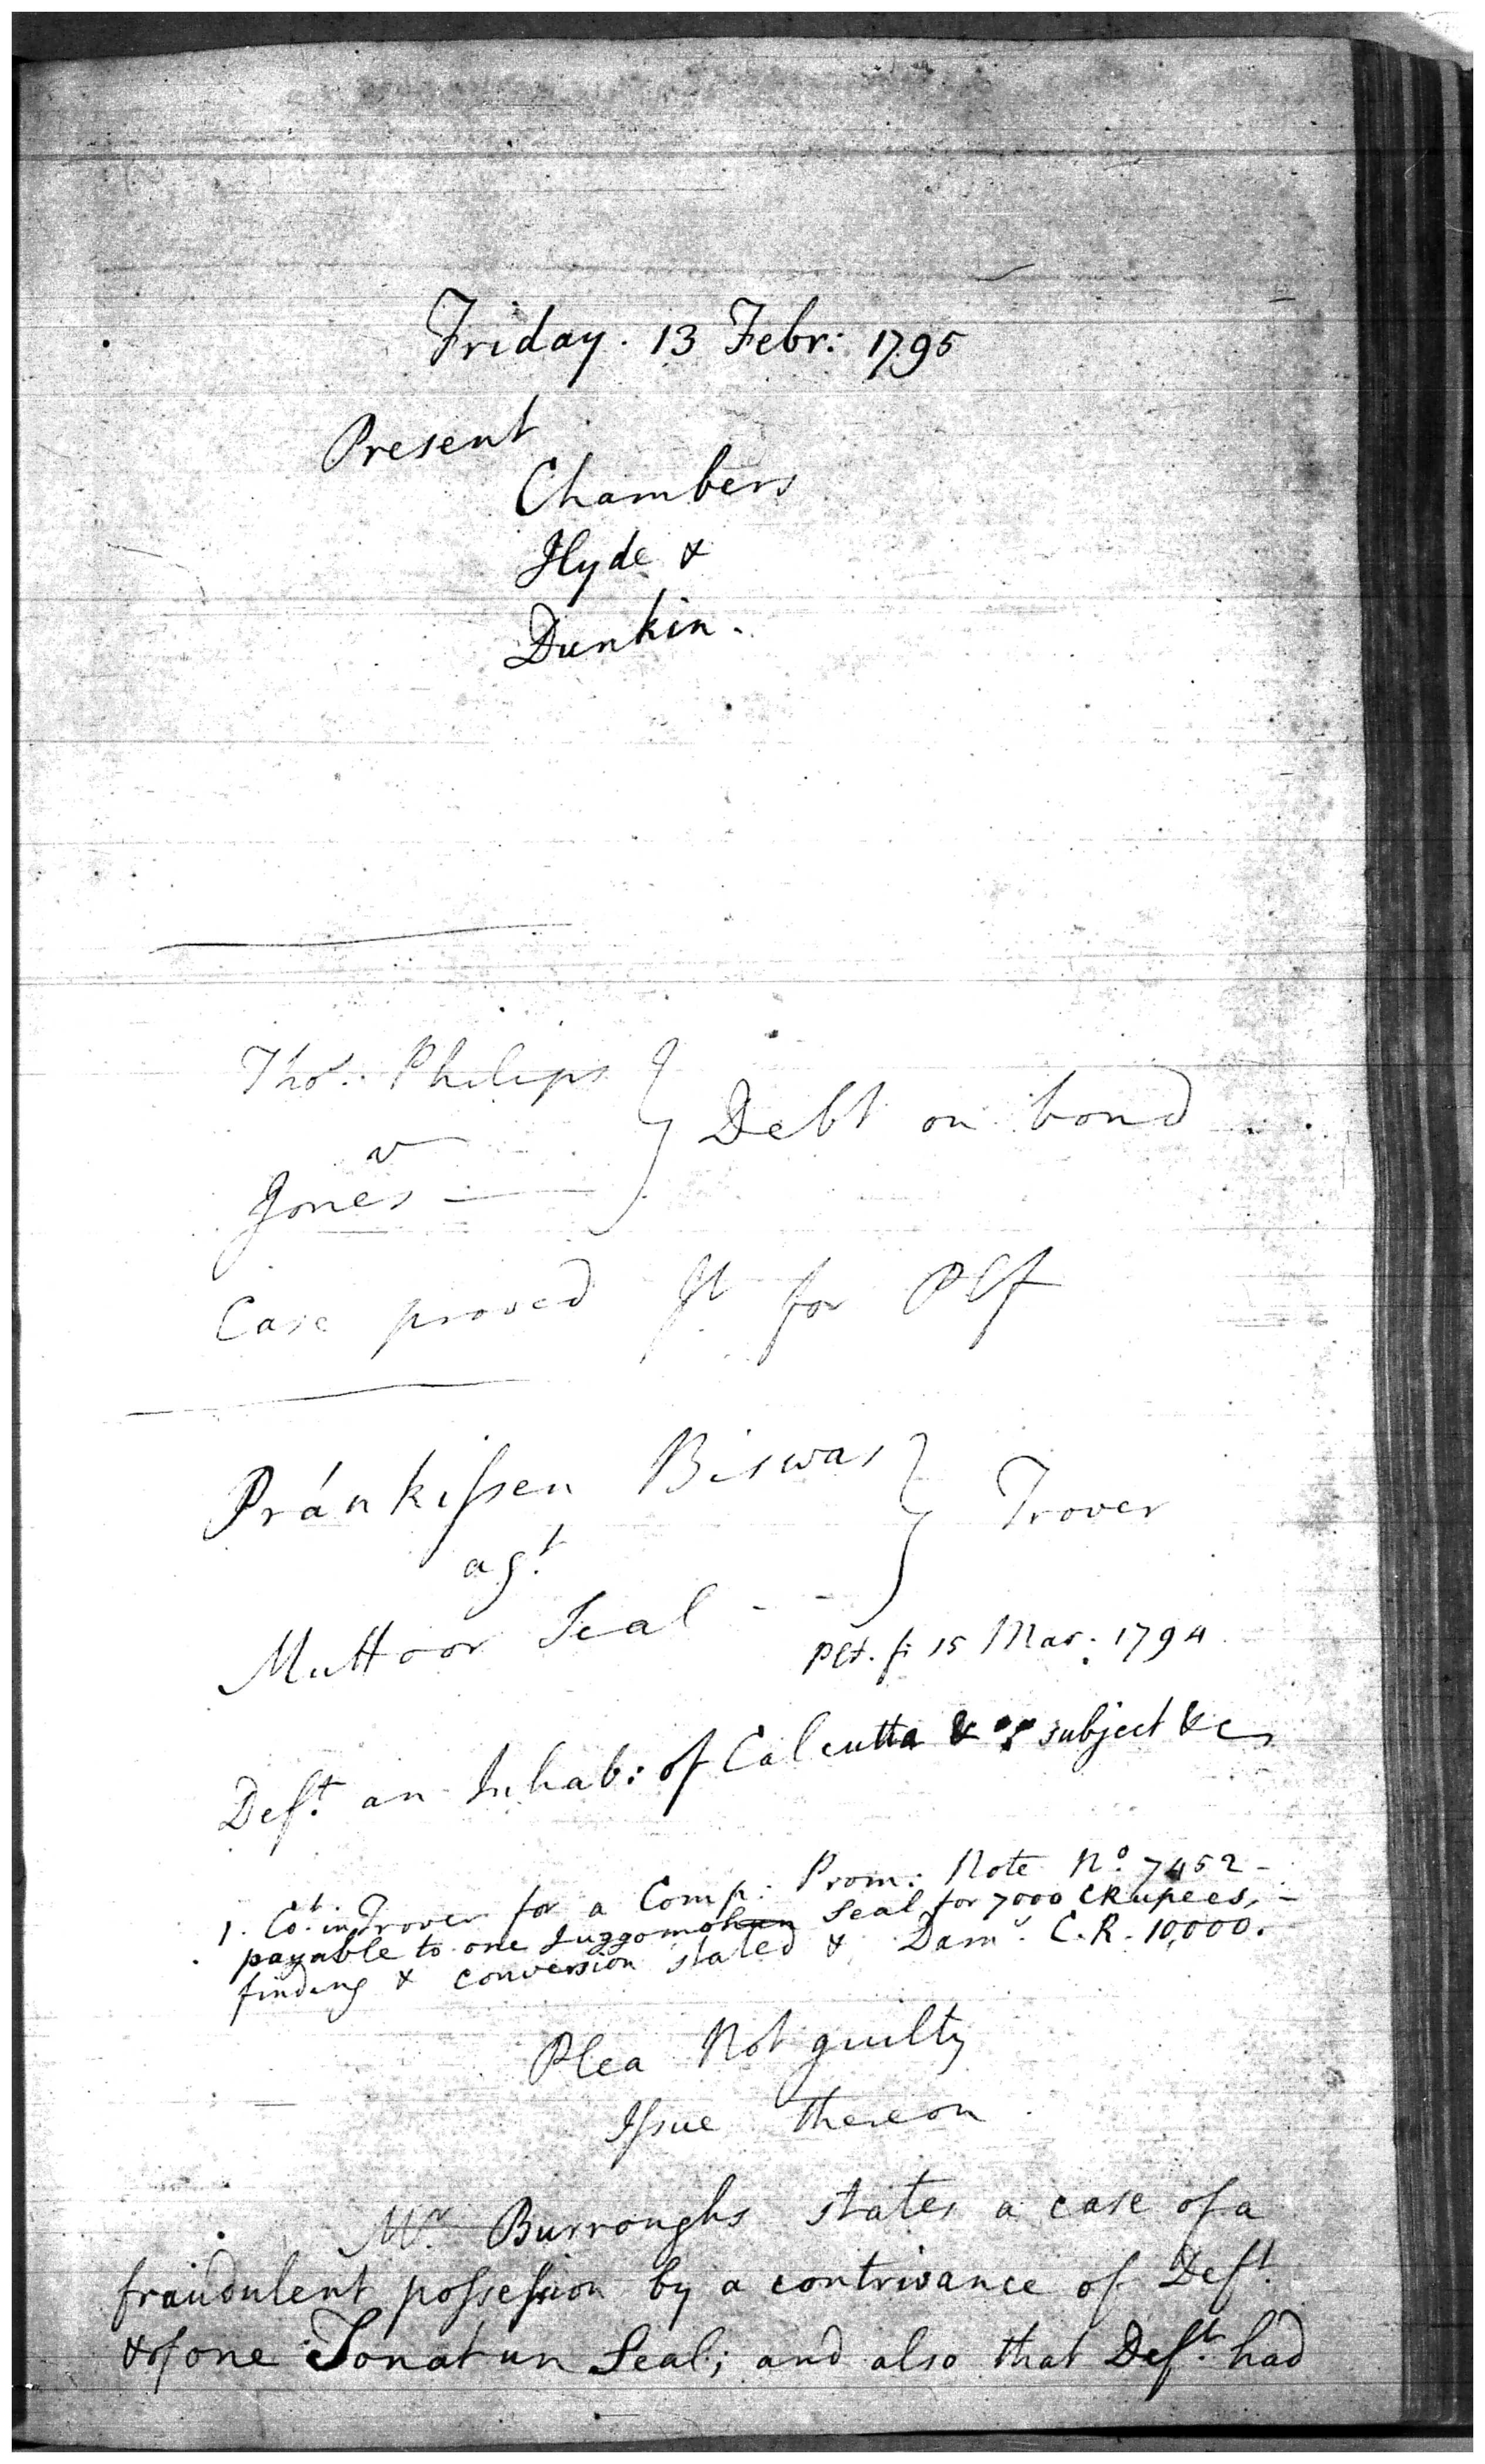 Friday. 13 Febr: 1795
Present
Chambers
Hyde &
Dunkin.
Thos. Philips
v
Jones
Debt on bond
Case proved Jt for Plf
Pránkissen Biswas
agt.
Muttoor Seal - -
Trover
Plt. fi 15 Mar: 1794
Deft. an Inhab: of Calcutta & subject &c
1. Ct. in Trover for a Comp: Prom: Note No. 7452 -
payable to one Juggomohun Seal for 7000 CRupees, -
finding & conversion stated & Dams. C.R. 10,000.
Plea Not guilty
Issue thereon.
Mr. Burroughs states a case of a
fraudulent possession by a contrivance of Deft.
& of one Sonatun Seal; and also that Deft. had